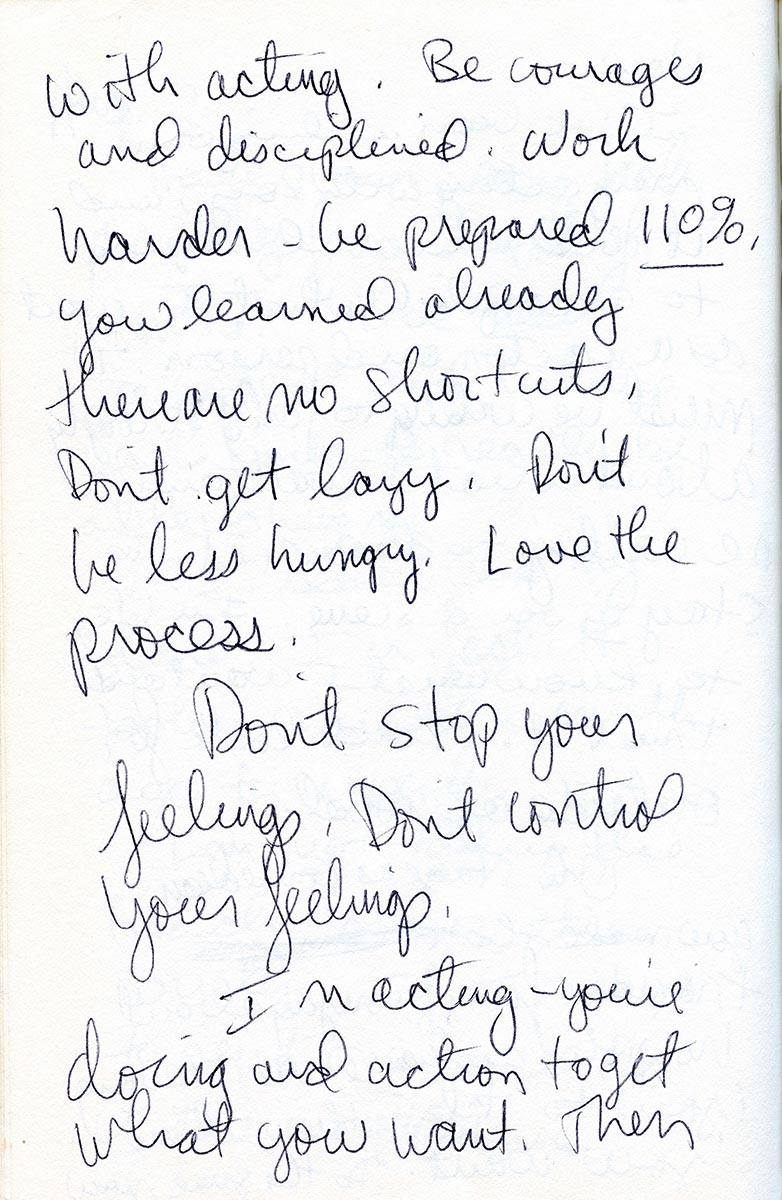 with acting. Be courages
and disciplined. Work
harder - be prepared 110%,
you learned already
there are no shortcuts,
Don't get lazy. Don't
be less hungry. Love the
process.
Don't stop your
feelings. Don't control
your feelings.
In acting - you're
doing and action to get
what you want. Then